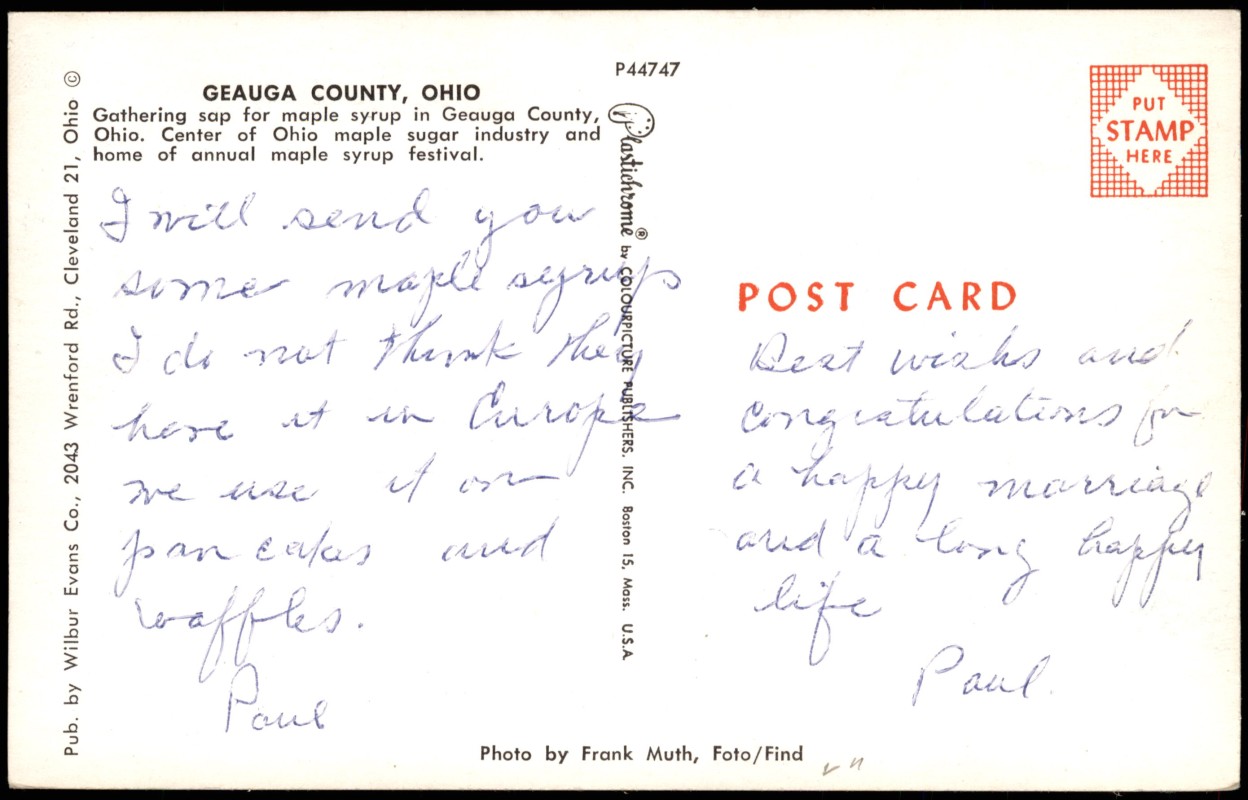 P44747
GEAUGA COUNTY, OHIO
Gathering sap for maple syrup in Geauga County,
Ohio. Center of Ohio maple sugar industry and
home of annual maple syrup festival.
Pub. by Wilbur Evans Co., 2043 Wrenford Rd., Cleveland 21, Ohio ©
I will send you
some maple syrups
I do not think they
have it in Europe
we use it on
pancakes and
waffles.
Paul
Plastichrome® by COLOURPICTURE PUBLISHERS, INC. Boston 15, Mass. U.S.A.
PUT
STAMP
HERE
POST CARD
Best wishs and
congratulations for
a happy marriage
and a long happy
life
Paul.
Photo by Frank Muth, Foto/Find